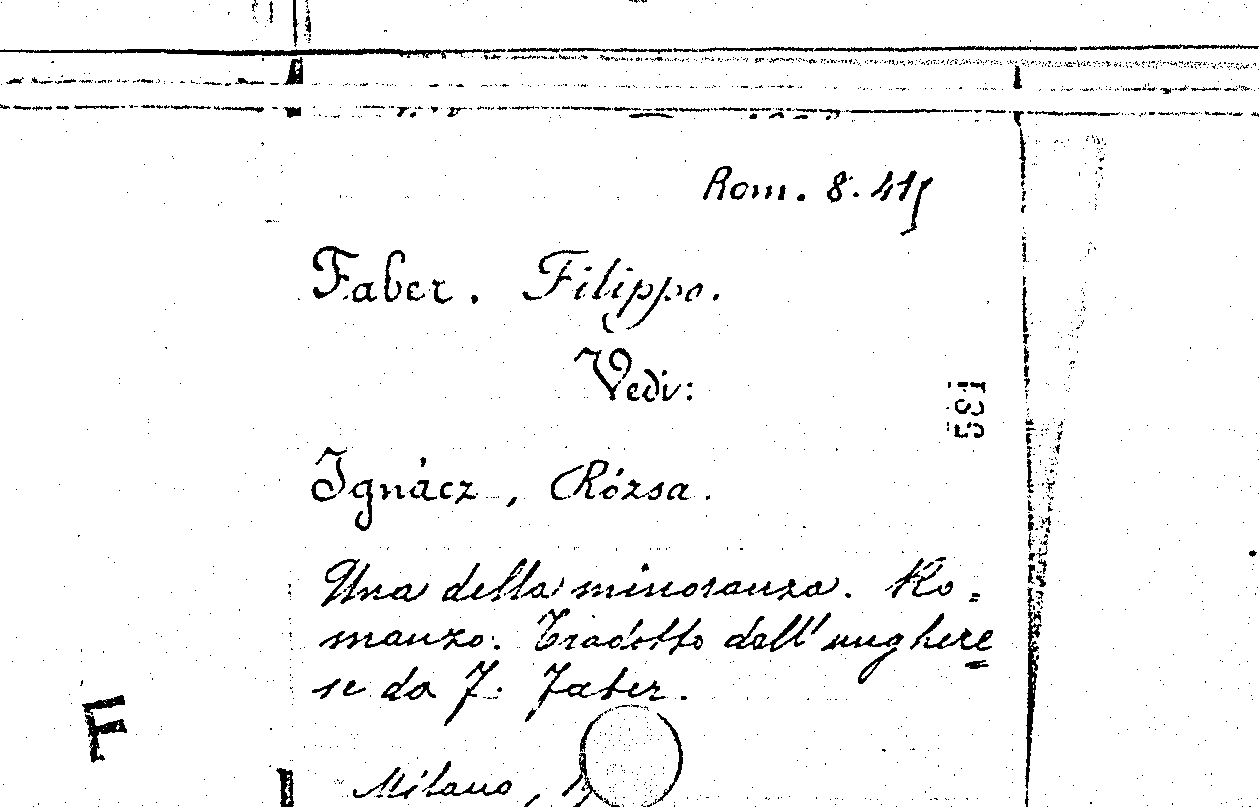 Rom. 8.415
Faber. Filippo.
Vedi:
Ignácz, Rózsa.
Una della minoranza. Ro=
manzo. Tradotto dall'unghere=
se da F. Faber.
Milano,
F